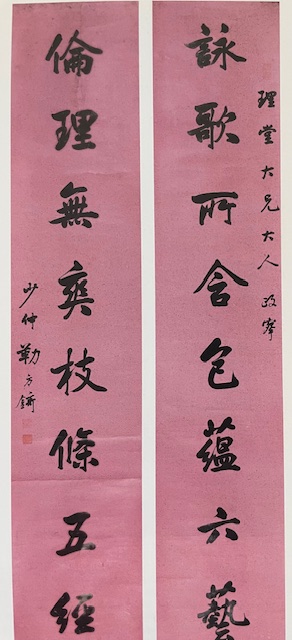 理堂大兄大人政
詠歌所含包蘊六藝
倫理無爽枝條五經
少仲勒方錡